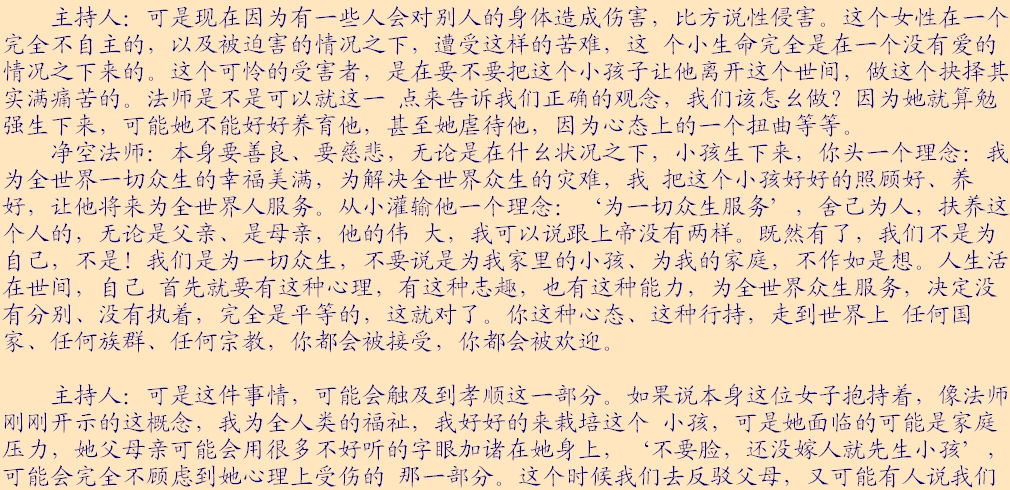 主持人：可是现在因为有一些人会对别人的身体造成伤害，比方说性侵害。这个女性在一个
完全不自主的，以及被迫害的情况之下，遭受这样的苦难，这 个小生命完全是在一个没有爱的
情况之下来的。这个可怜的受害者，是在要不要把这个小孩子让他离开这个世间，做这个抉择其
实满痛苦的。法师是不是可以就这一 点来告诉我们正确的观念，我们该怎幺做？因为她就算勉
强生下来，可能她不能好好养育他，甚至她虐待他，因为心态上的一个扭曲等等。
净空法师：本身要善良、要慈悲，无论是在什幺状况之下，小孩生下来，你头一个理念：我
为全世界一切众生的幸福美满，为解决全世界众生的灾难，我 把这个小孩好好的照顾好、养
好，让他将来为全世界人服务。从小灌输他一个理念：‘为一切众生服务’，舍己为人，扶养这
个人的，无论是父亲、是母亲，他的伟 大，我可以说跟上帝没有两样。既然有了，我们不是为
自己，不是！我们是为一切众生，不要说是为我家里的小孩、为我的家庭，不作如是想。人生活
在世间，自己 首先就要有这种心理，有这种志趣，也有这种能力，为全世界众生服务，决定没
有分别、没有执着，完全是平等的，这就对了。你这种心态、这种行持，走到世界上 任何国
家、任何族群、任何宗教，你都会被接受，你都会被欢迎。
主持人：可是这件事情，可能会触及到孝顺这一部分。如果说本身这位女子抱持着，像法师
刚刚开示的这概念，我为全人类的福祉，我好好的来栽培这个 小孩，可是她面临的可能是家庭
压力，她父母亲可能会用很多不好听的字眼加诸在她身上，‘不要脸，还没嫁人就先生小孩’，
可能会完全不顾虑到她心理上受伤的 那一部分。这个时候我们去反驳父母，又可能有人说我们